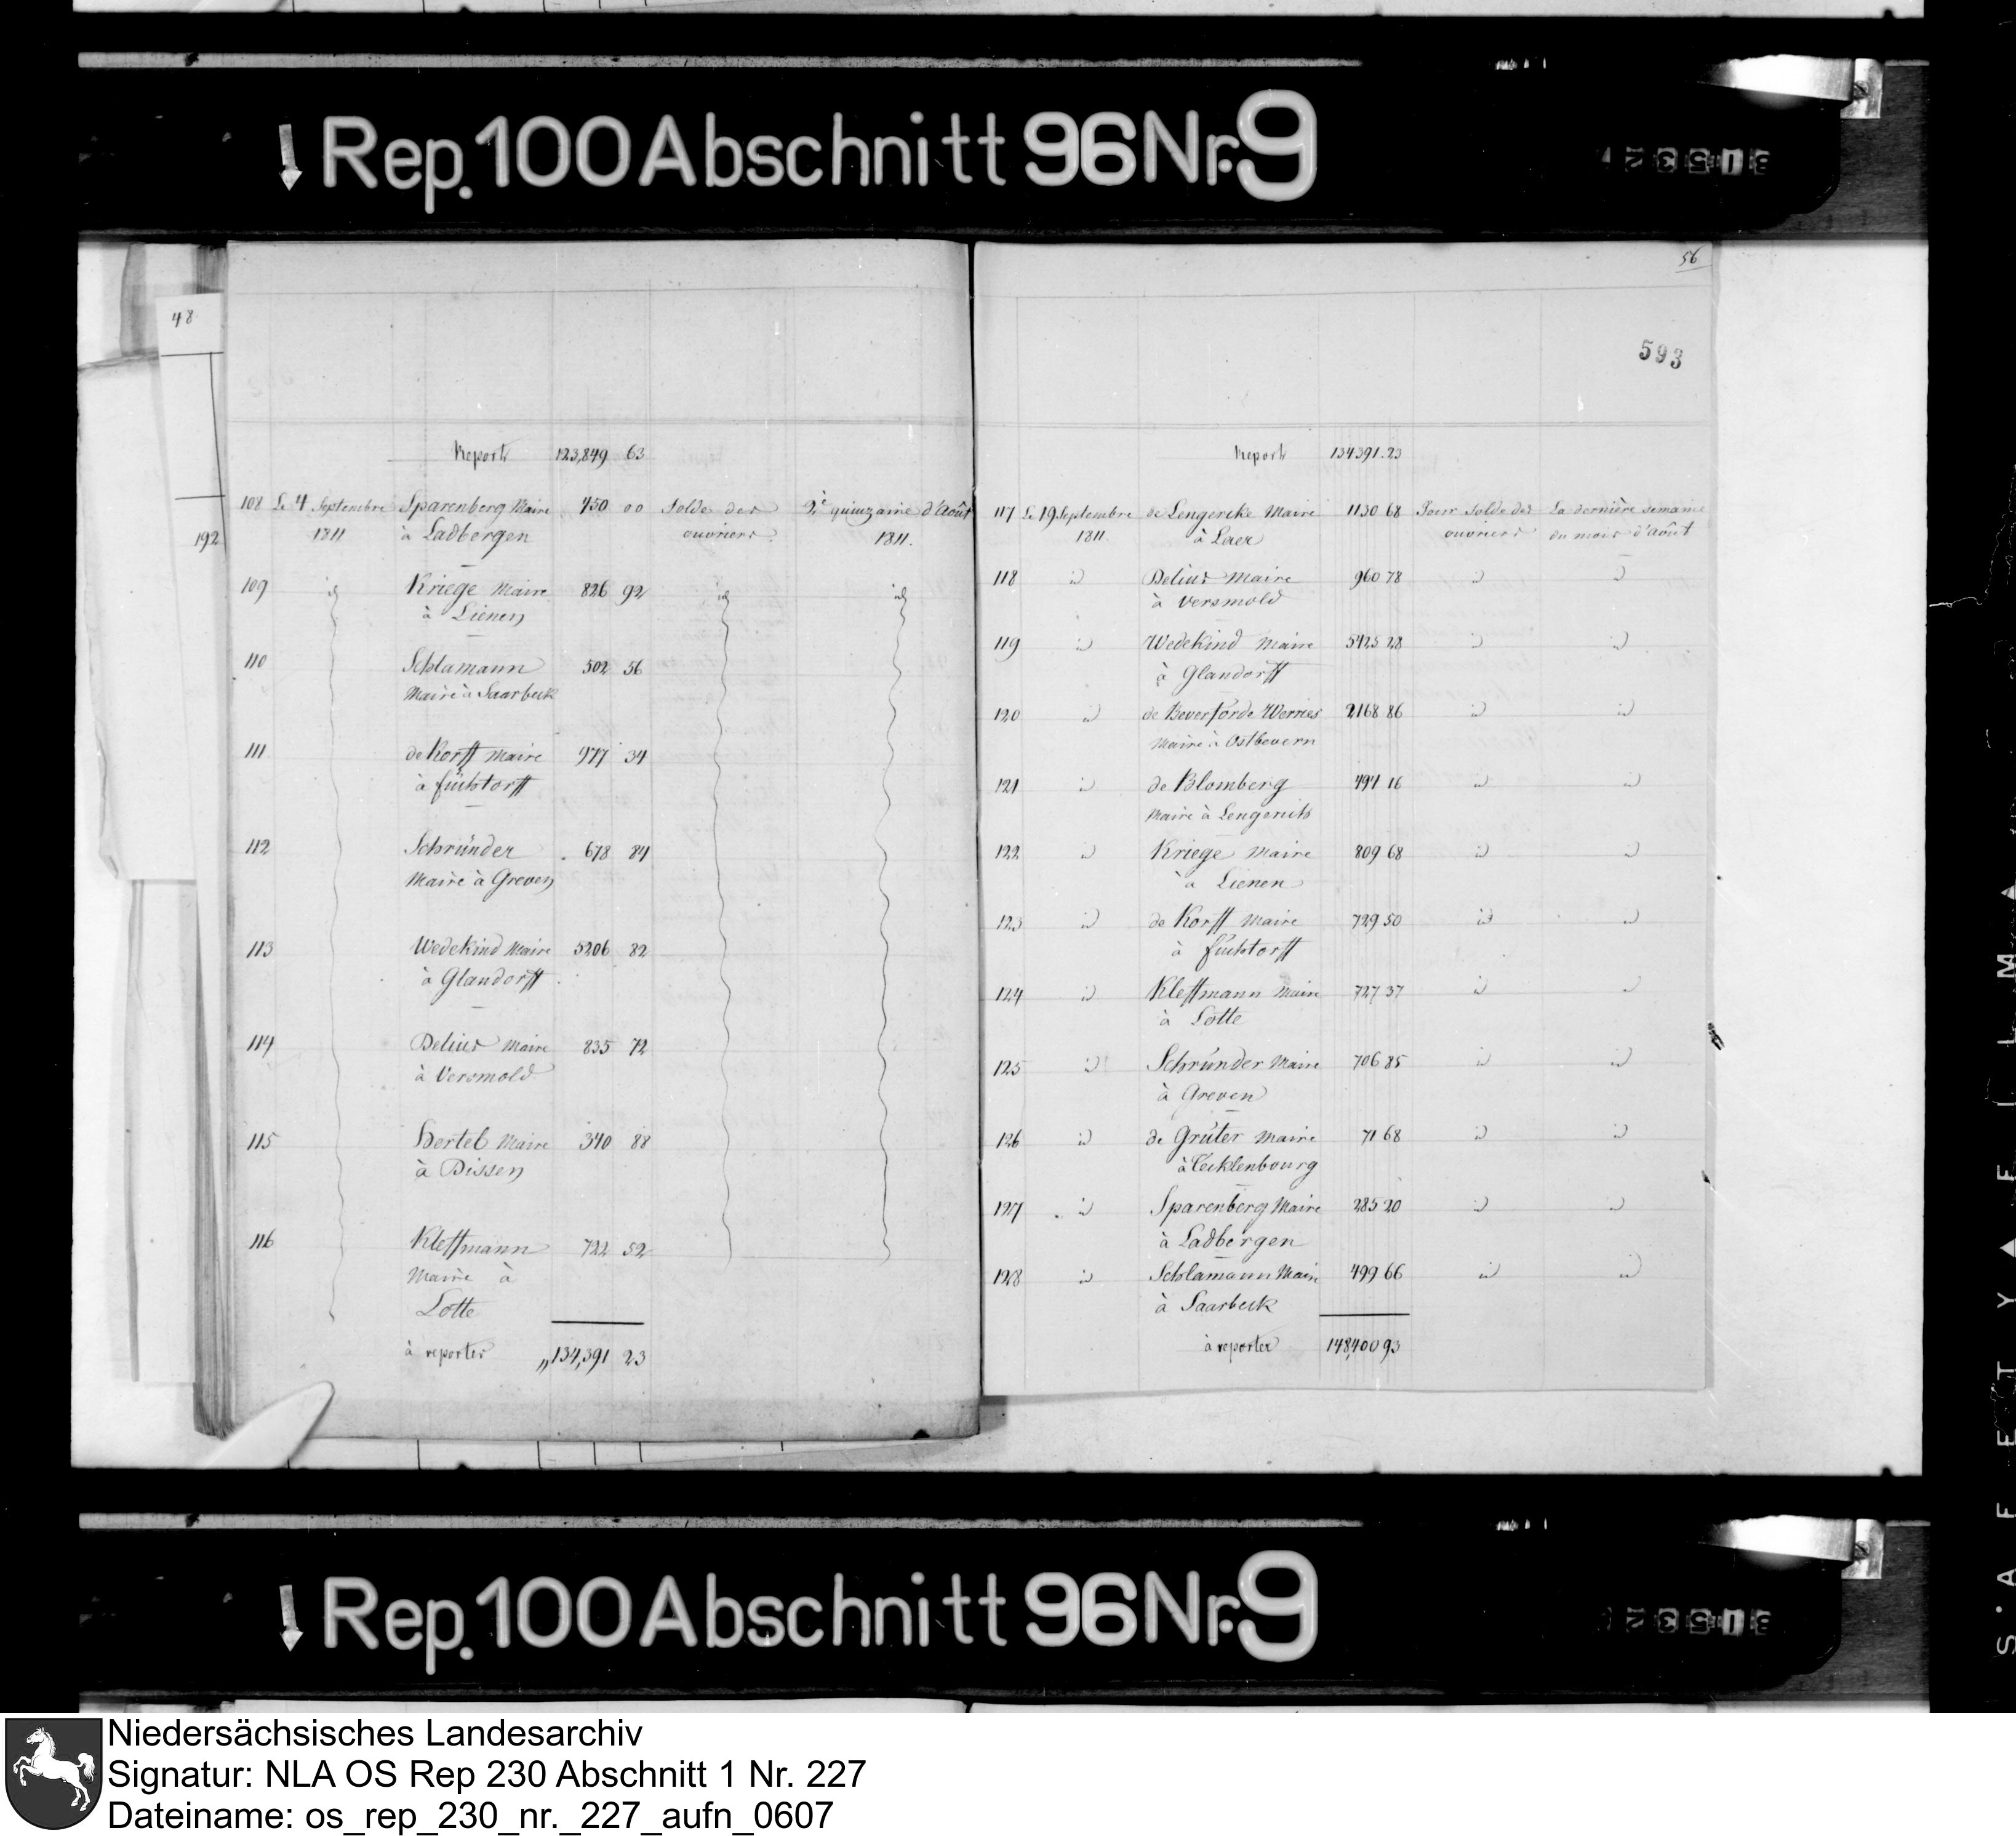 Rep. 100 Abschnitt 96 Nr. 9
48
192
Report 123,849 63
108 Le 4 Septembre Sparenberg Maire 450 00 Solde des 2e quinzaine d'Août
1811 à Ladbergen ouvriers 1811.
109 id Kriege Maire 826 92 id id
à Lienen
110 Schlamann 502 56
Maire à Saarbeck
111 de Korff Maire 977 34
à füchtorff
112 Schründer 678 84
Maire à Greven
113 Wedekind Maire 5206 82
à Glandorff
114 Delius Maire 835 72
à Versmold
115 Hertel Maire 340 88
à Dissen
116 Kleffmann 722 52
Maire à
Lotte
à reporter 134,391 23
56
593
Report 134391.23
117 Le 19 Septembre de Lengercke Maire 1130 68 Pour Solde des La dernière semaine
1811. à Laer ouvriers du mois d'Août
118 id Delius Maire 960 78 id id
à Versmold
119 id Wedekind Maire 5425 28 id id
à Glandorff
120 id de Beverförde Werries 2168 86 id id
Maire à Ostbevern
121 id de Blomberg 494 16 id id
Maire à Lengerich
122 id Kriege Maire 809 68 id id
à Lienen
123 id de Korff Maire 729 50 id id
à füchtorff
124 id Kleffmann Maire 727 37 id id
à Lotte
125 id Schründer Maire 706 85 id id
à Greven
126 id de Grüter Maire 71 68 id id
à Tecklenbourg
127 id Sparenberg Maire 285 20 id id
à Ladbergen
128 id Schlamann Maire 499 66 id id
à Saarbeck
à reporter 148,400 93
Rep. 100 Abschnitt 96 Nr. 9
Niedersächsisches Landesarchiv
Signatur: NLA OS Rep 230 Abschnitt 1 Nr. 227
Dateiname: os_rep_230_nr._227_aufn_0607